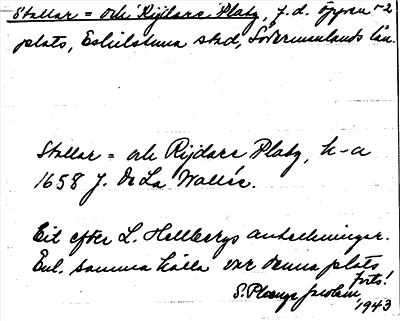 Stallar = och Rijdare Platz, f.d. öppen
plats, Eskilstuna stad, Södermanlands län.
Stallar = och Rijdare Platz, k-a
1658 J. De La Wallée.
Cit efter L. Hellbergs anteckningar.
Enl. samma källa var denna plats
forts!
S.
1943